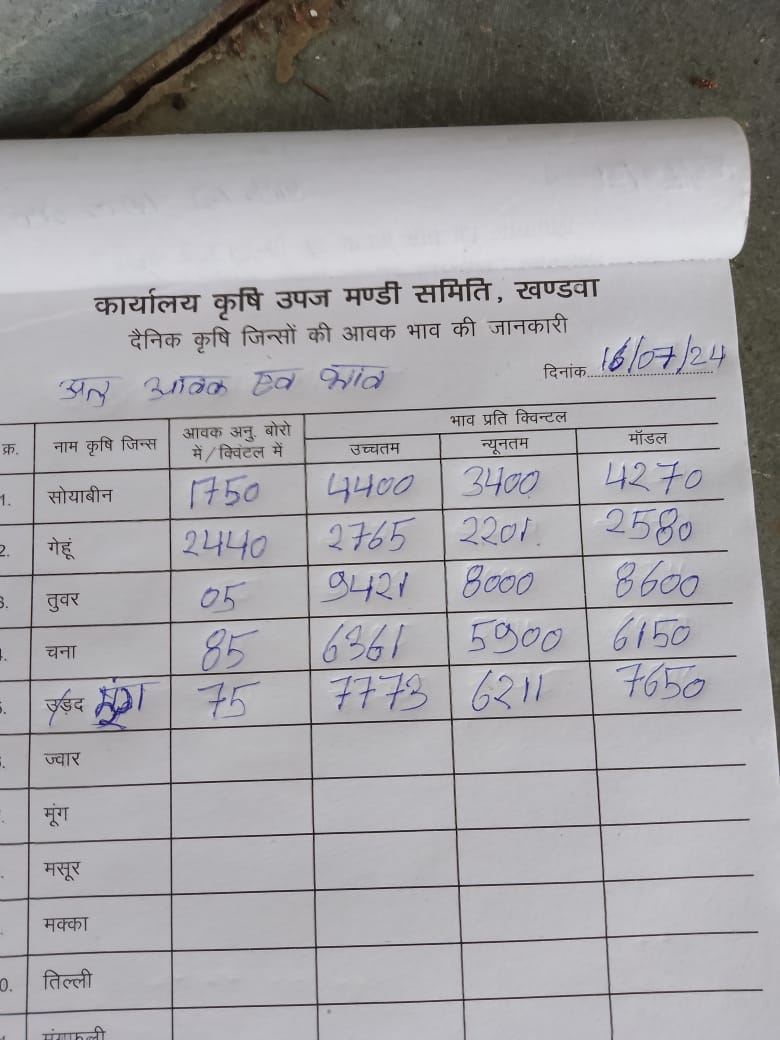 कार्यालय कृषि उपज मण्डी समिति, खण्डवा
दैनिक कृषि जिन्सों की आवक भाव की जानकारी
दिनांक 16/07/24
अनु आवक एव भाव
क्र. नाम कृषि जिन्स आवक अनु. बोरो में/क्विंटल में भाव प्रति क्विन्टल
उच्चतम न्यूनतम मॉडल
1. सोयाबीन 1750 4400 3400 4270
2. गेहूं 2440 2765 2201 2580
3. तुवर 05 9421 8000 8600
चना 85 6361 5900 6150
उड़द मूंग 75 7773 6211 7650
ज्वार
मूंग
मसूर
मक्का
0. तिल्ली
मूंगफली